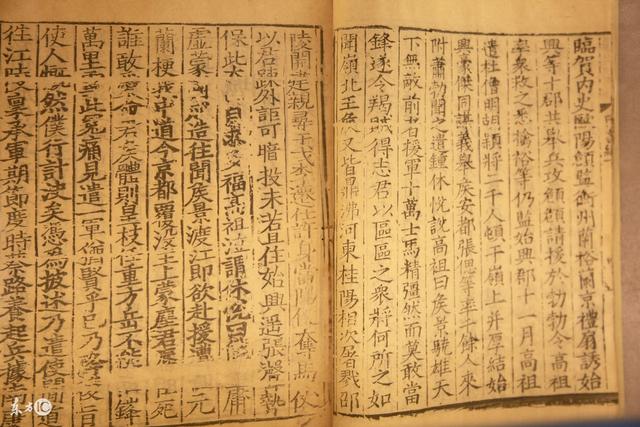 臨賀內史歐陽頠監衡州蘭裕蘭京禮扇誘始
興等十郡共舉兵攻頠頠請援於勃勃令高祖
率衆救之悉擒裕等仍監始興郡十一月高祖
遣杜僧明胡穎將二千人頓于嶺上并厚結始
興豪傑同謀義舉侯安都張偲等率千餘人來
附蕭勃聞之遣鍾休悅說高祖曰侯景驍雄天
下無敵前者援軍十萬士馬精彊然而莫敢當
鋒遂令羯賊得志君以區區之衆將何所之如
聞嶺北王侯又皆鼎沸河東桂陽相次屠戮邵
陵開建親尋干戈李遷仕許身當陽便奪馬仗
以君疎外詎可暗投未若且住始興遙張聲勢
保此太多福高祖泣謂休悅曰庸
虛蒙造往聞侯景渡江即欲赴援遭元
蘭梗我中道今京都覆沒主上蒙塵君死
誰敢愛命君侯體則皇枝任重方岳不能鋒
萬里雪此冤痛見遣一軍猶賢乎已乃旨
使人慨然僕行計決矣憑爲披述乃遣使間道
往江陵稟承軍期節度時蔡路養起兵據南